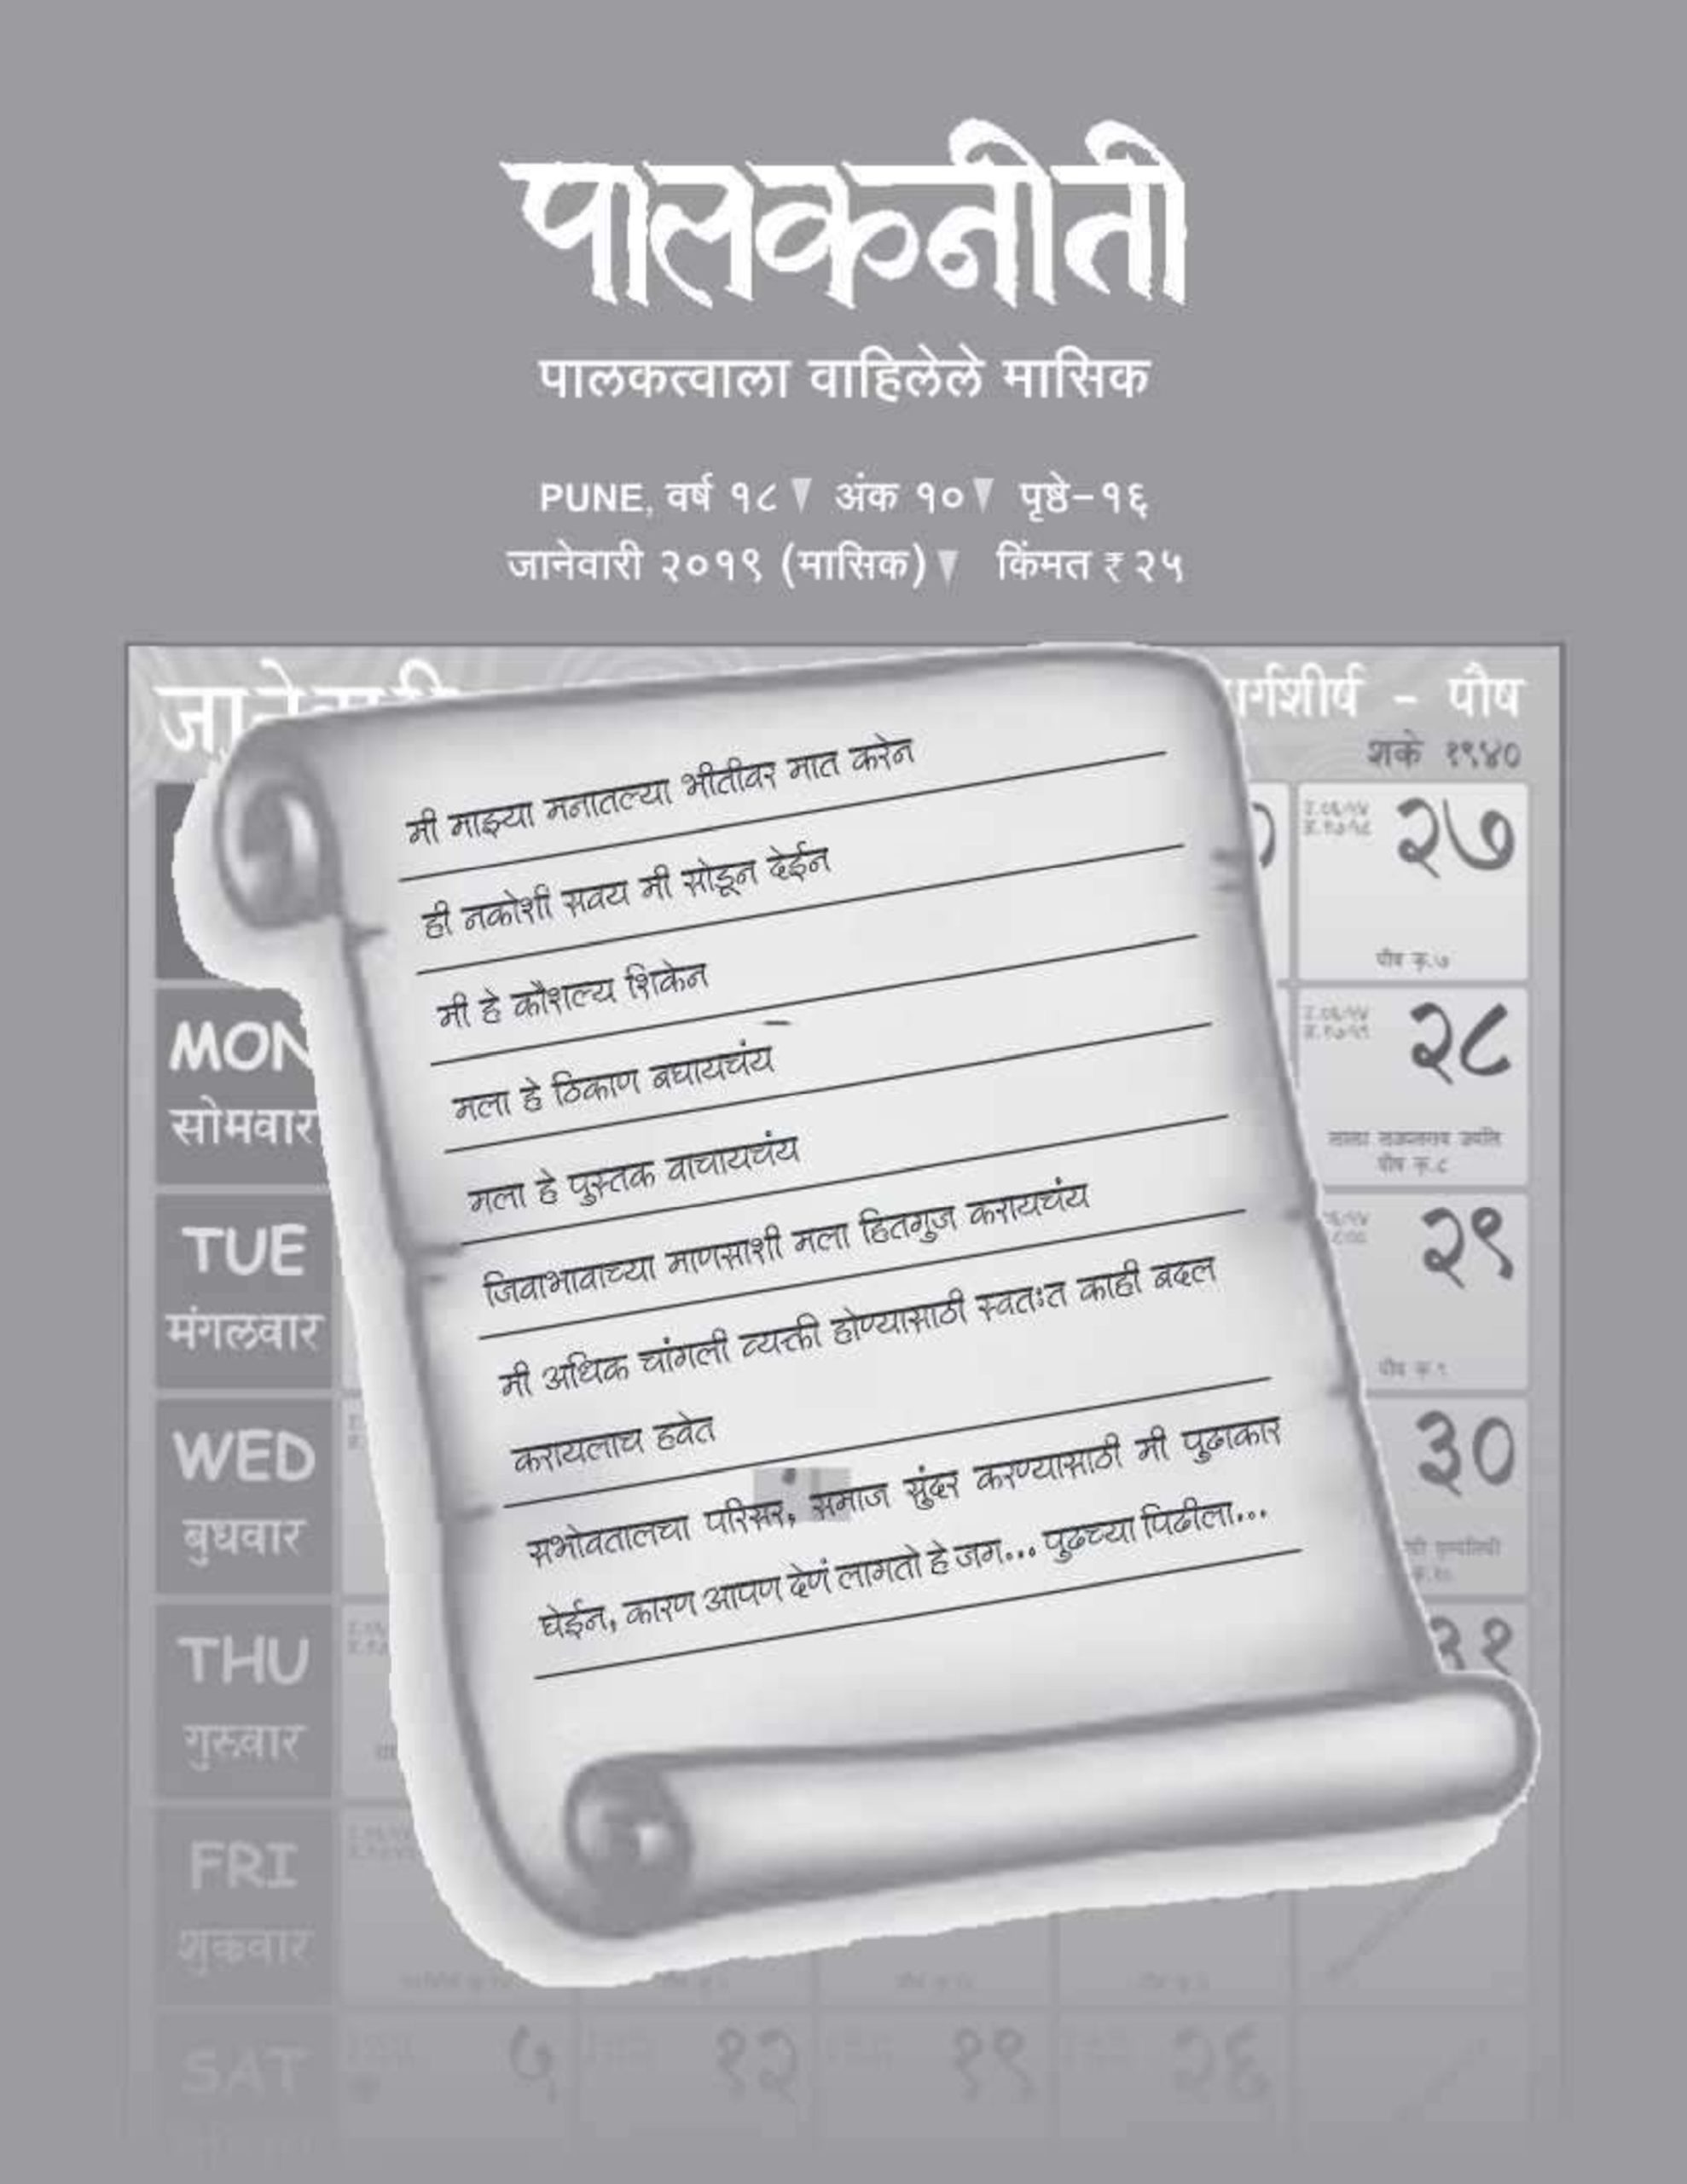 पालकनीती
पालकत्वाला वाहिलेले मासिक
PUNE, वर्ष १८ अंक १० पृष्ठे–१६
जानेवारी २०१९ (मासिक) किंमत ₹ २५
– पौष
शके १९४०
मी माझ्या मनातल्या भीतीवर मात करेन
ही नकोशी सवय मी सोडून देईन
मी हे कौशल्य शिकेन
मला हे ठिकाण बघायचंय
मला हे पुस्तक वाचायचंय
जिवाभावाच्या माणसाशी मला हितगुज करायचंय
मी अधिक चांगली व्यक्ती होण्यासाठी स्वतःत काही बदल
करायलाच हवेत
सभोवतालचा परिसर, समाज सुंदर करण्यासाठी मी पुढाकार
घेईन, कारण आपण देणं लागतो हे जग... पुढच्या पिढीला...
२७
पौष कृ.७
MON
सोमवार
२८
पौष कृ.८
TUE
मंगळवार
२९
पौष कृ.९
WED
बुधवार
३०
THU
गुरुवार
३१
FRI
शुक्रवार
SAT
५ १२ १९ २६